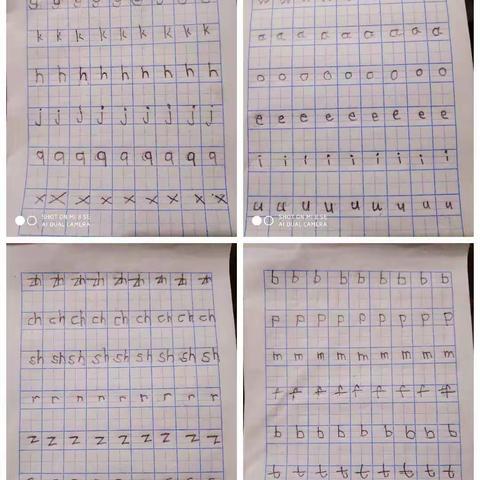 k k k k k k k k k
h h h h h h h h h
j j j j j j j j j
q q q q q q q q q
x x x x x x x x x
SHOT ON MI 8 SE
AI DUAL CAMERA
a a a a a a a a a
o o o o o o o o o
e e e e e e e e e
i i i i i i i i i
u u u u u u u u u
SHOT ON MI 8 SE
AI DUAL CAMERA
th th th th th th th th th
ch ch ch ch ch ch ch ch ch
sh sh sh sh sh sh sh sh sh
r r r r r r r r r
z z z z z z z z z
p p p p p p p p p
m m m m m m m m m
f f f f f f f f f